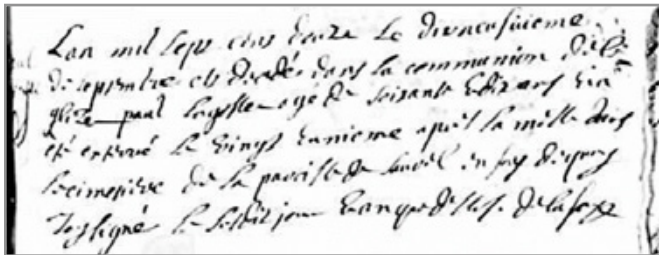 Lan mil sept cens douze le dixneufvieme
de septembre est decedé dans la communion de le
glise paul agé de soixante et dix ans et a
été enterré le vingt unieme après la messe dans
le cimetiere de la paroisse de en foy de quoy
J'ay signé le susdit jour